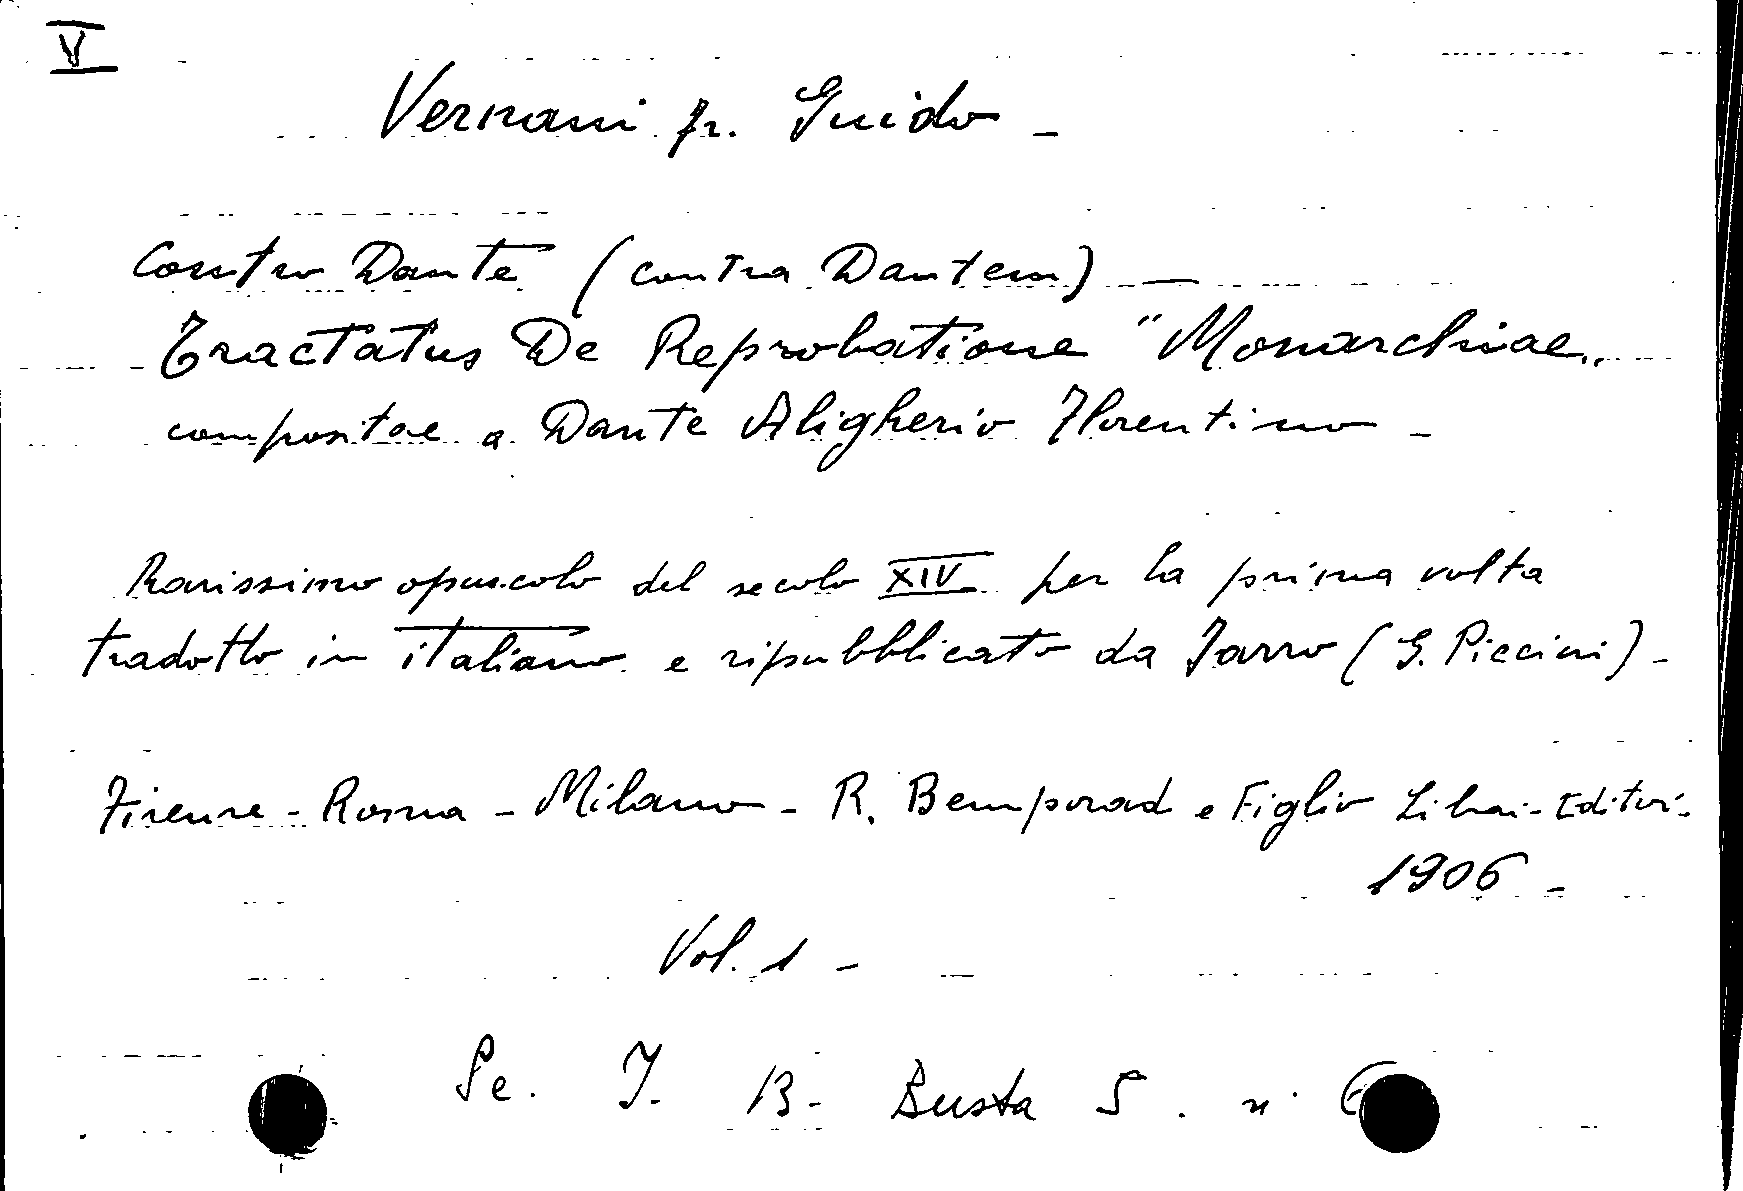 V
Vernani fr. Guido -
Contro Dante (contra Dantem) -
Tractatus De Reprobatione "Monarchiae„
compositae a Dante Aligherio Florentino -
Rarissimo opuscolo del secolo XIV per la prima volta
tradotto in italiano e ripubblicato da Jarro (G. Piccini) -
Firenze - Roma - Milano - R. Bemporad e Figlio Librai-Editori -
1906 -
Vol. 1 -
Sc. I. 13 - Busta 5. n.